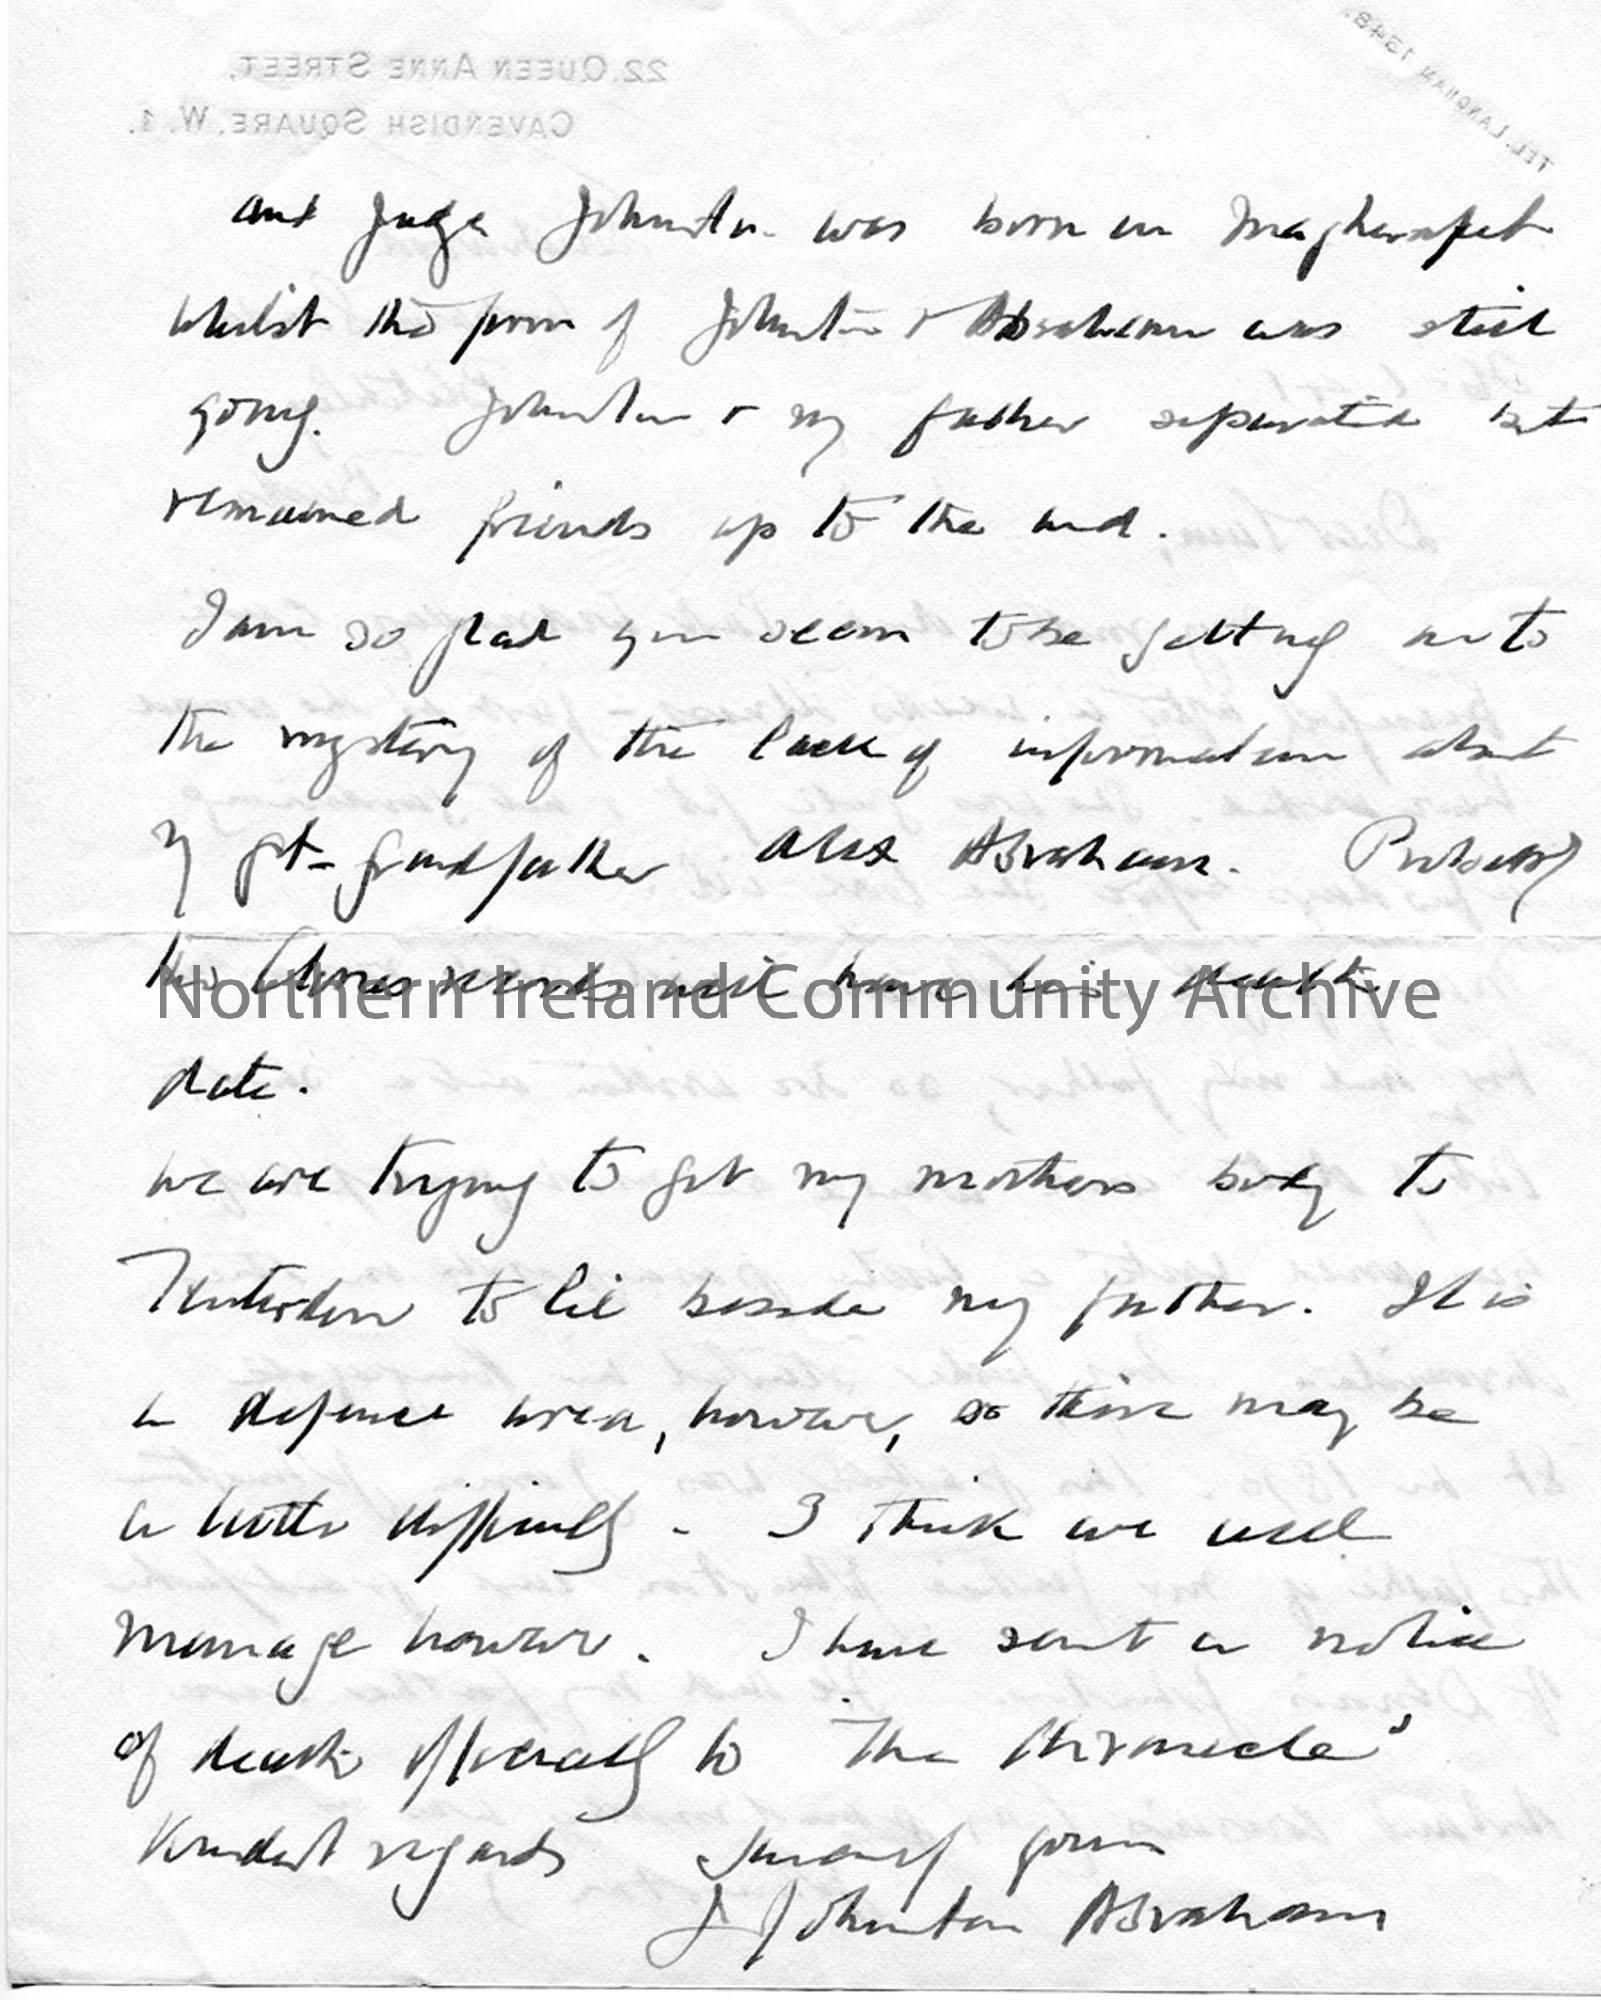 TEL. LANGHAM 1348.
22, QUEEN ANNE STREET,
CAVENDISH SQUARE, W. 1.
and Judge Johnston was born in Magherafelt
whilst the firm of Johnston & Abraham was still
going. Johnston & my father separated but
remained friends up to the end.
I am so glad you seem to be getting on to
the mystery of the lack of information about
my gt-grandfather Alex Abraham. Probably
the records will have his death
date.
We are trying to get my mothers body to
Tenterden to lie beside my father. It is
a defence area, however, so there may be
a little difficulty. I think we will
manage however. I have sent a notice
of death officially to "The Chronicle"
Kindest regards Sincerely yours
J Johnston Abraham
Northern Ireland Community Archive